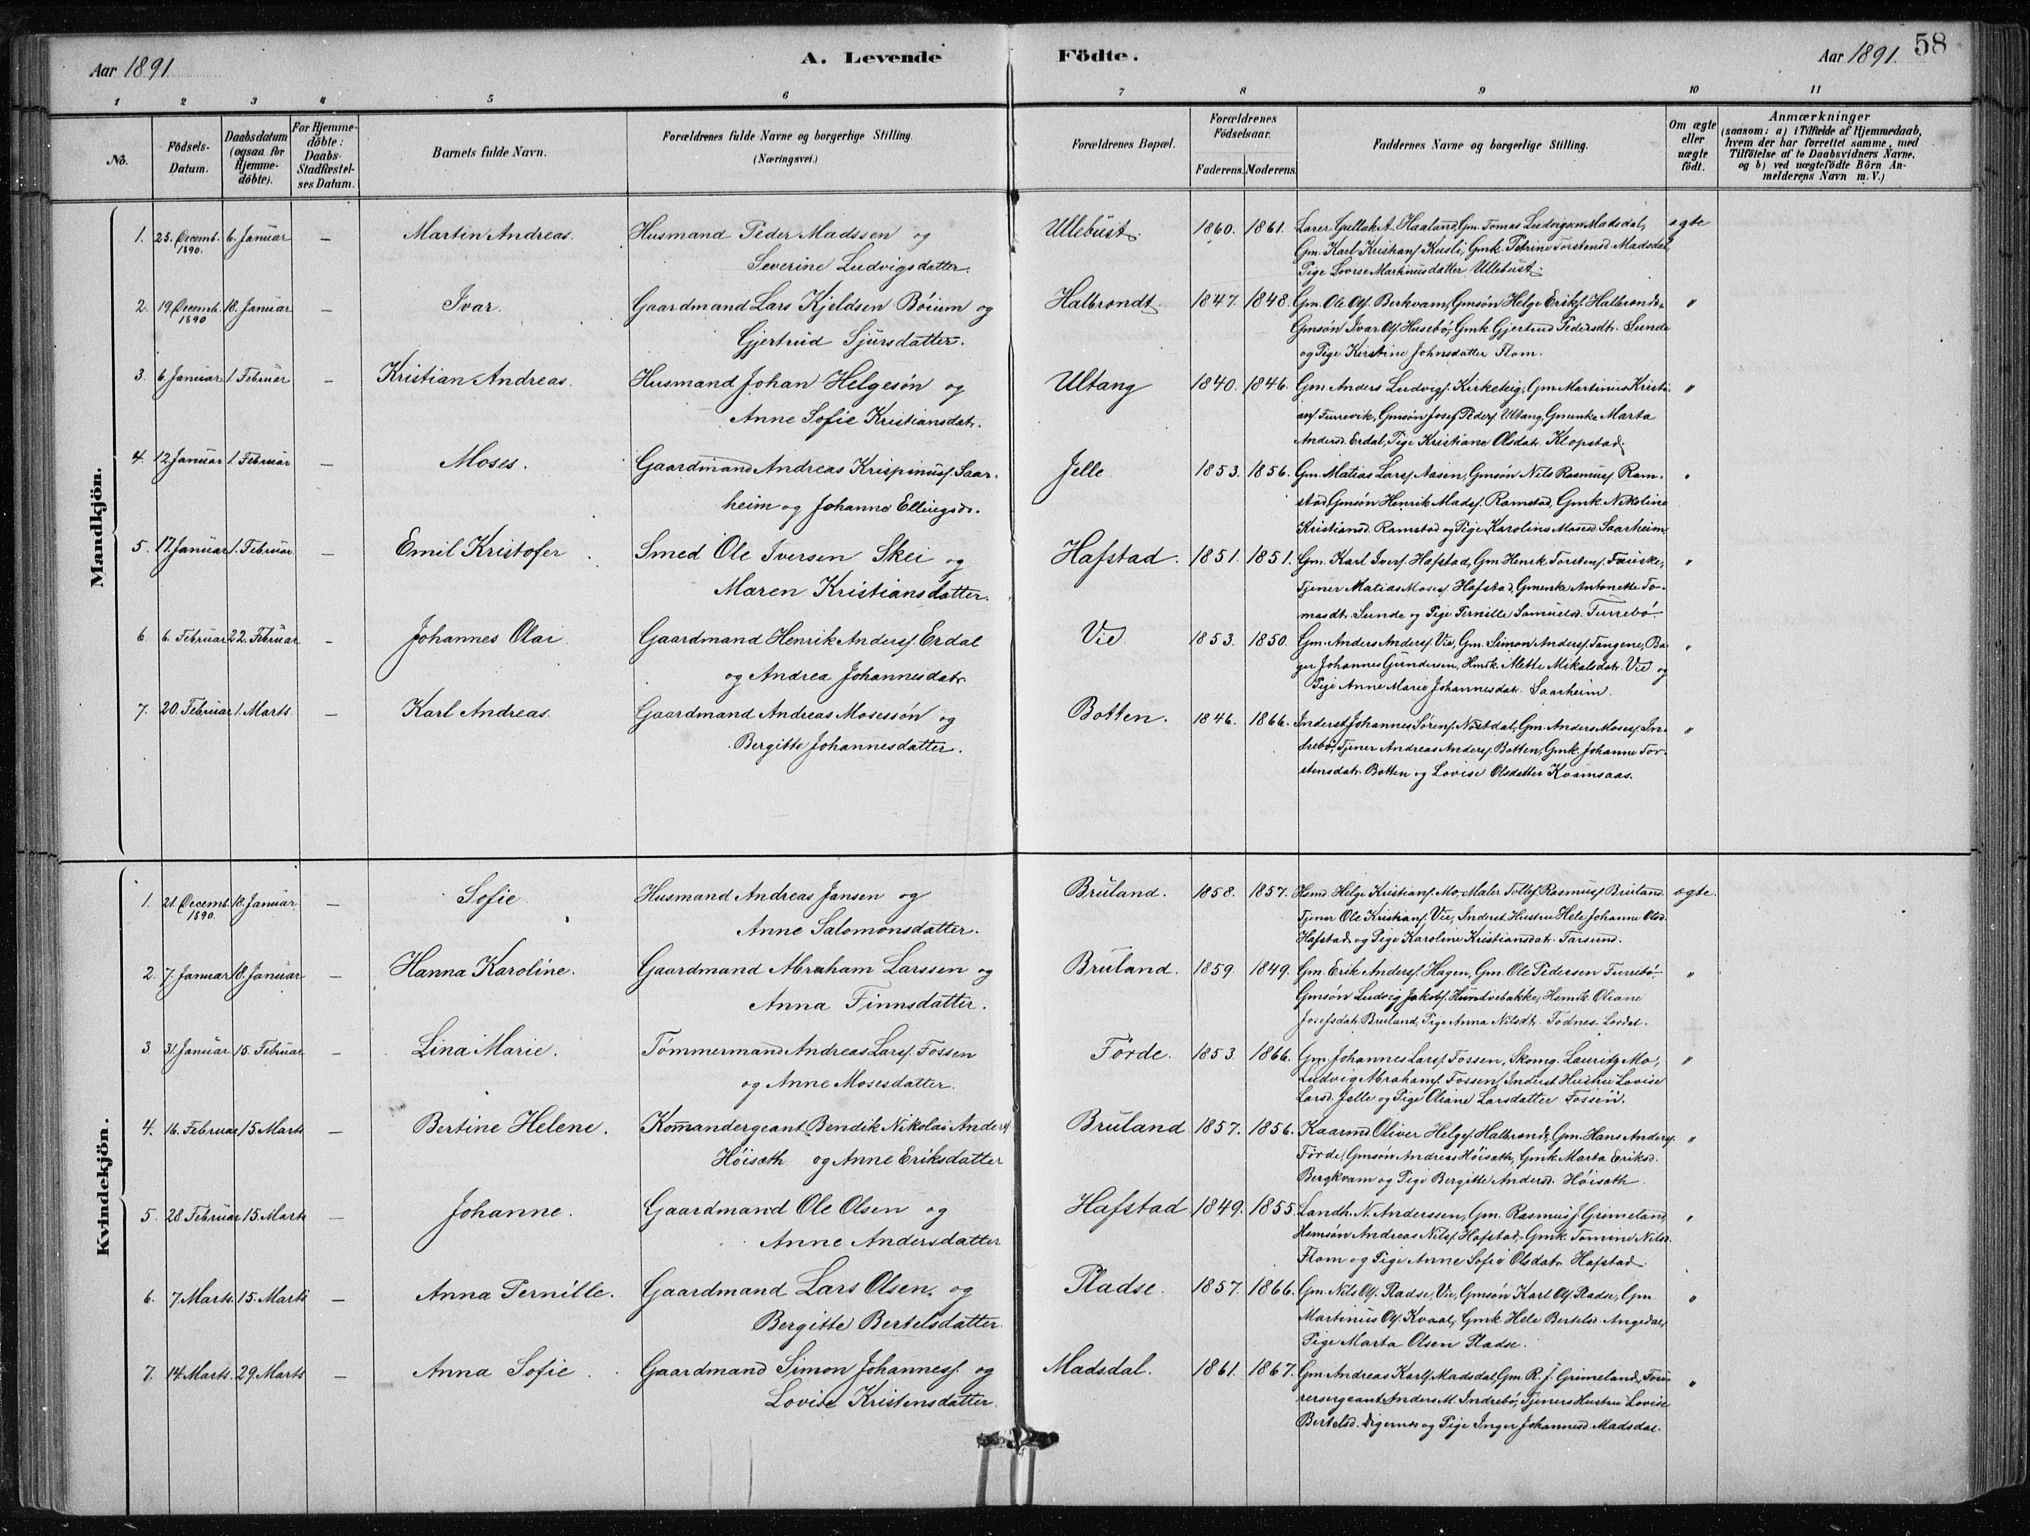 58
Aar 1891. A. Levende Födte. Aar 1891.
1 2 3 4 5 6 7 8 9 10 11
No. Födsels-Datum. Daabsdatum (ogsaa for Hjemme-döbte). For Hjemme-döbte: Daabs-Stadfæstel-ses Datum. Barnets fulde Navn. Forældrenes fulde Navne og borgerlige Stilling. (Næringsvei.) Forældrenes Bopæl. Forældrenes Födselsaar. Faderens. Moderens. Faddernes Navne og borgerlige Stilling. Om ægte eller uægte födt. Anmærkninger (saasom: a) i Tilfælde af Hjemmedaab, hvem der har forrettet samme, med Tilföielse af to Daabsvidners Navne, og b) ved uægtefödte Börn An-melderens Navn m. V.)
Mandkjön.
1. 25. Decemb. 1890. 6. Januar – Martin Andreas. Husmand Peder Madssen og Ullebust. 1860. 1861. Lærer Gullak A. Haaland, Gm. Tomas Ludvigsen Madsdal, ægte
Severine Ludvigsdatter. Gm. Karl Kristians. Kusli, Gmk. Petrine Torstensd. Madsdal,
Pige Lovise Martinusdatter Ullebust.
2. 19 Decemb. 1890 18. Januar – Ivar. Gaardmand Lars Kjeldsen Böium og Halbrendt. 1847. 1848. Gm. Ole Ols. Berkvam, Gmsøn Helge Eriks. Halbrends, "
Gjertrud Sjursdatter. Gmsøn Ivar Ols. Husebö, Gmk. Gjertrud Pedersdt. Sunde
og Pige Kirstine Johnsdatter Flom.
3. 6. Januar 1. Februar – Kristian Andreas. Husmand Johan Helgesøn og Ultang 1840. 1846. Gm. Anders Ludvigs. Kirketeig, Gm. Martinus Kristi- "
Anne Sofie Kristiansdatr. ans. Furevik, Gmsøn Josef Peders. Ultang, Gmenke Marta
Andersd. Erdal, Pige Kristiane Olsdatr. Klopstad.
4. 12 Januar 1. Februar – Moses. Gaardmand Andreas Krispinus. Saar- Jelle 1853. 1856. Gm. Matias Lars. Aasen, Gmsøn Nils Rasmus. Ram- "
heim og Johanne Ellingsdr. stad, Gmsøn Henrik Mads. Ramstad, Gmk. Nikoline
Kristiansd. Ramstad og Pige Karoline Mosesd. Saarheim.
5. 17. Januar 1. Februar – Emil Kristofer. Smed Ole Iversen Skei og Hafstad. 1851. 1851. Gm. Karl Ivers. Hafstad, Gm. Henrik Torstens. Fauske, "
Maren Kristiansdatter. Tjener Matias Moses. Hafstad, Gmenke Antonette To-
masdt. Sunde og Pige Pernille Samuelsd. Furrebö.
6. 6. Februar 22. Februar – Johannes Olai. Gaardmand Henrik Anders. Erdal Vie. 1853. 1850. Gm. Anders Anders. Vie, Gm. Simon Anders. Tangene, Ba- "
og Andrea Johannesdatr. ger Johannes Gundersen, Hmk. Mette Mikalsdatr. Vie og
Pige Anne Marie Johannesdatr. Saarheim.
7. 20. Februar 1. Marts – Karl Andreas. Gaardmand Andreas Mosessøn og Botten. 1846. 1866. Inderst Johannes Sørens. Nøstdal, Gm. Anders Moses. In- "
Bergitte Johannesdatter. drebö, Tjener Andreas Anders. Botten, Gmk. Johanne Tor-
stensdatr. Botten og Lovise Olsdatter Kvamsaas.
Kvindekjön.
1. 21. Decemb. 1890. 18. Januar – Sofie. Husmand Andreas Jansen og Bruland. 1858. 1857. Hsmd. Helge Kristians. Mo, Maler Tollef Rasmus. Bruland. ægte.
Anne Salomonsdatter. Tjener Ole Kristians. Vie, Inderst Hustru Hele Johanne Olsd.
Hafstad og Pige Karoline Kristiansdatr. Farsund.
2. 7. Januar 18. Januar – Hanna Karoline. Gaardmand Abraham Larssen og Bruland. 1859. 1849. Gm. Erik Anders. Hagen, Gm. Ole Pedersen Furrebö "
Anna Finnsdatter. Gmsøn Ludvig Jakobs. Hundvebakke, Hsmk. Oliane
Josefsdatr. Bruland, Pige Anna Nilsdt. Todnes Lærdal.
3. 31. Januar 15. Februar – Lina Marie. Tømmermand Andreas Lars. Fossen Førde. 1853. 1866. Gm. Johannes Lars. Fossen, Skomg. Lauritz Mo, "
og Anne Mosesdatter. Ludvig Abrahams. Fossen, Inderst Hustru Lovise
Larsd. Jelle og Pige Oliane Larsdatter Fossen.
4. 16. Februar 15. Marts – Bertine Helene. Kommandergeant Bendik Nikolai Anders. Bruland 1857. 1856. Kaarmd. Oliver Helges. Halbrends, Gm. Hans Anders. "
Høisæth og Anne Eriksdatter Førde, Gmsøn Andreas Høisæth, Gmk. Marta Eriksd.
Bergkvam og Pige Bergitte Andersd. Høisæth.
5. 28. Februar 15. Marts – Johanne. Gaardmand Ole Olsen og Hafstad 1849. 1855. Landh. N. Anderssen, Gm. Rasmus J. Grimeland, "
Anne Andersdatter Hsmsøn Andreas Nils. Hafstad, Gmk. Tomine Nilsd.
Flom og Pige Anne Sofie Olsdatr. Hafstad.
6. 7. Marts. 15. Marts – Anna Pernille. Gaardmand Lars Olsen. og Pladse. 1857. 1866. Gm. Nils Ols. Pladse, Vie, Gmsøn Karl Ols. Pladse, Gm. "
Bergitte Bertelsdatter. Martinus Ols. Kvaal, Gmk. Hele Bertelsd. Angedal,
Pige Marta Olsen Pladse.
7. 14. Marts. 29. Marts – Anna Sofie. Gaardmand Simon Johannes. og Madsdal. 1861. 1867. Gm. Andreas Karls. Madsdal, Gm. R. J. Grimeland, Fou- "
Lovise Kristensdatter. rersergeant Anders M. Indrebö, Tjeners Hustru Lovise
Bertelsd. Digernes og Pige Inger Johannesd. Madsdal.